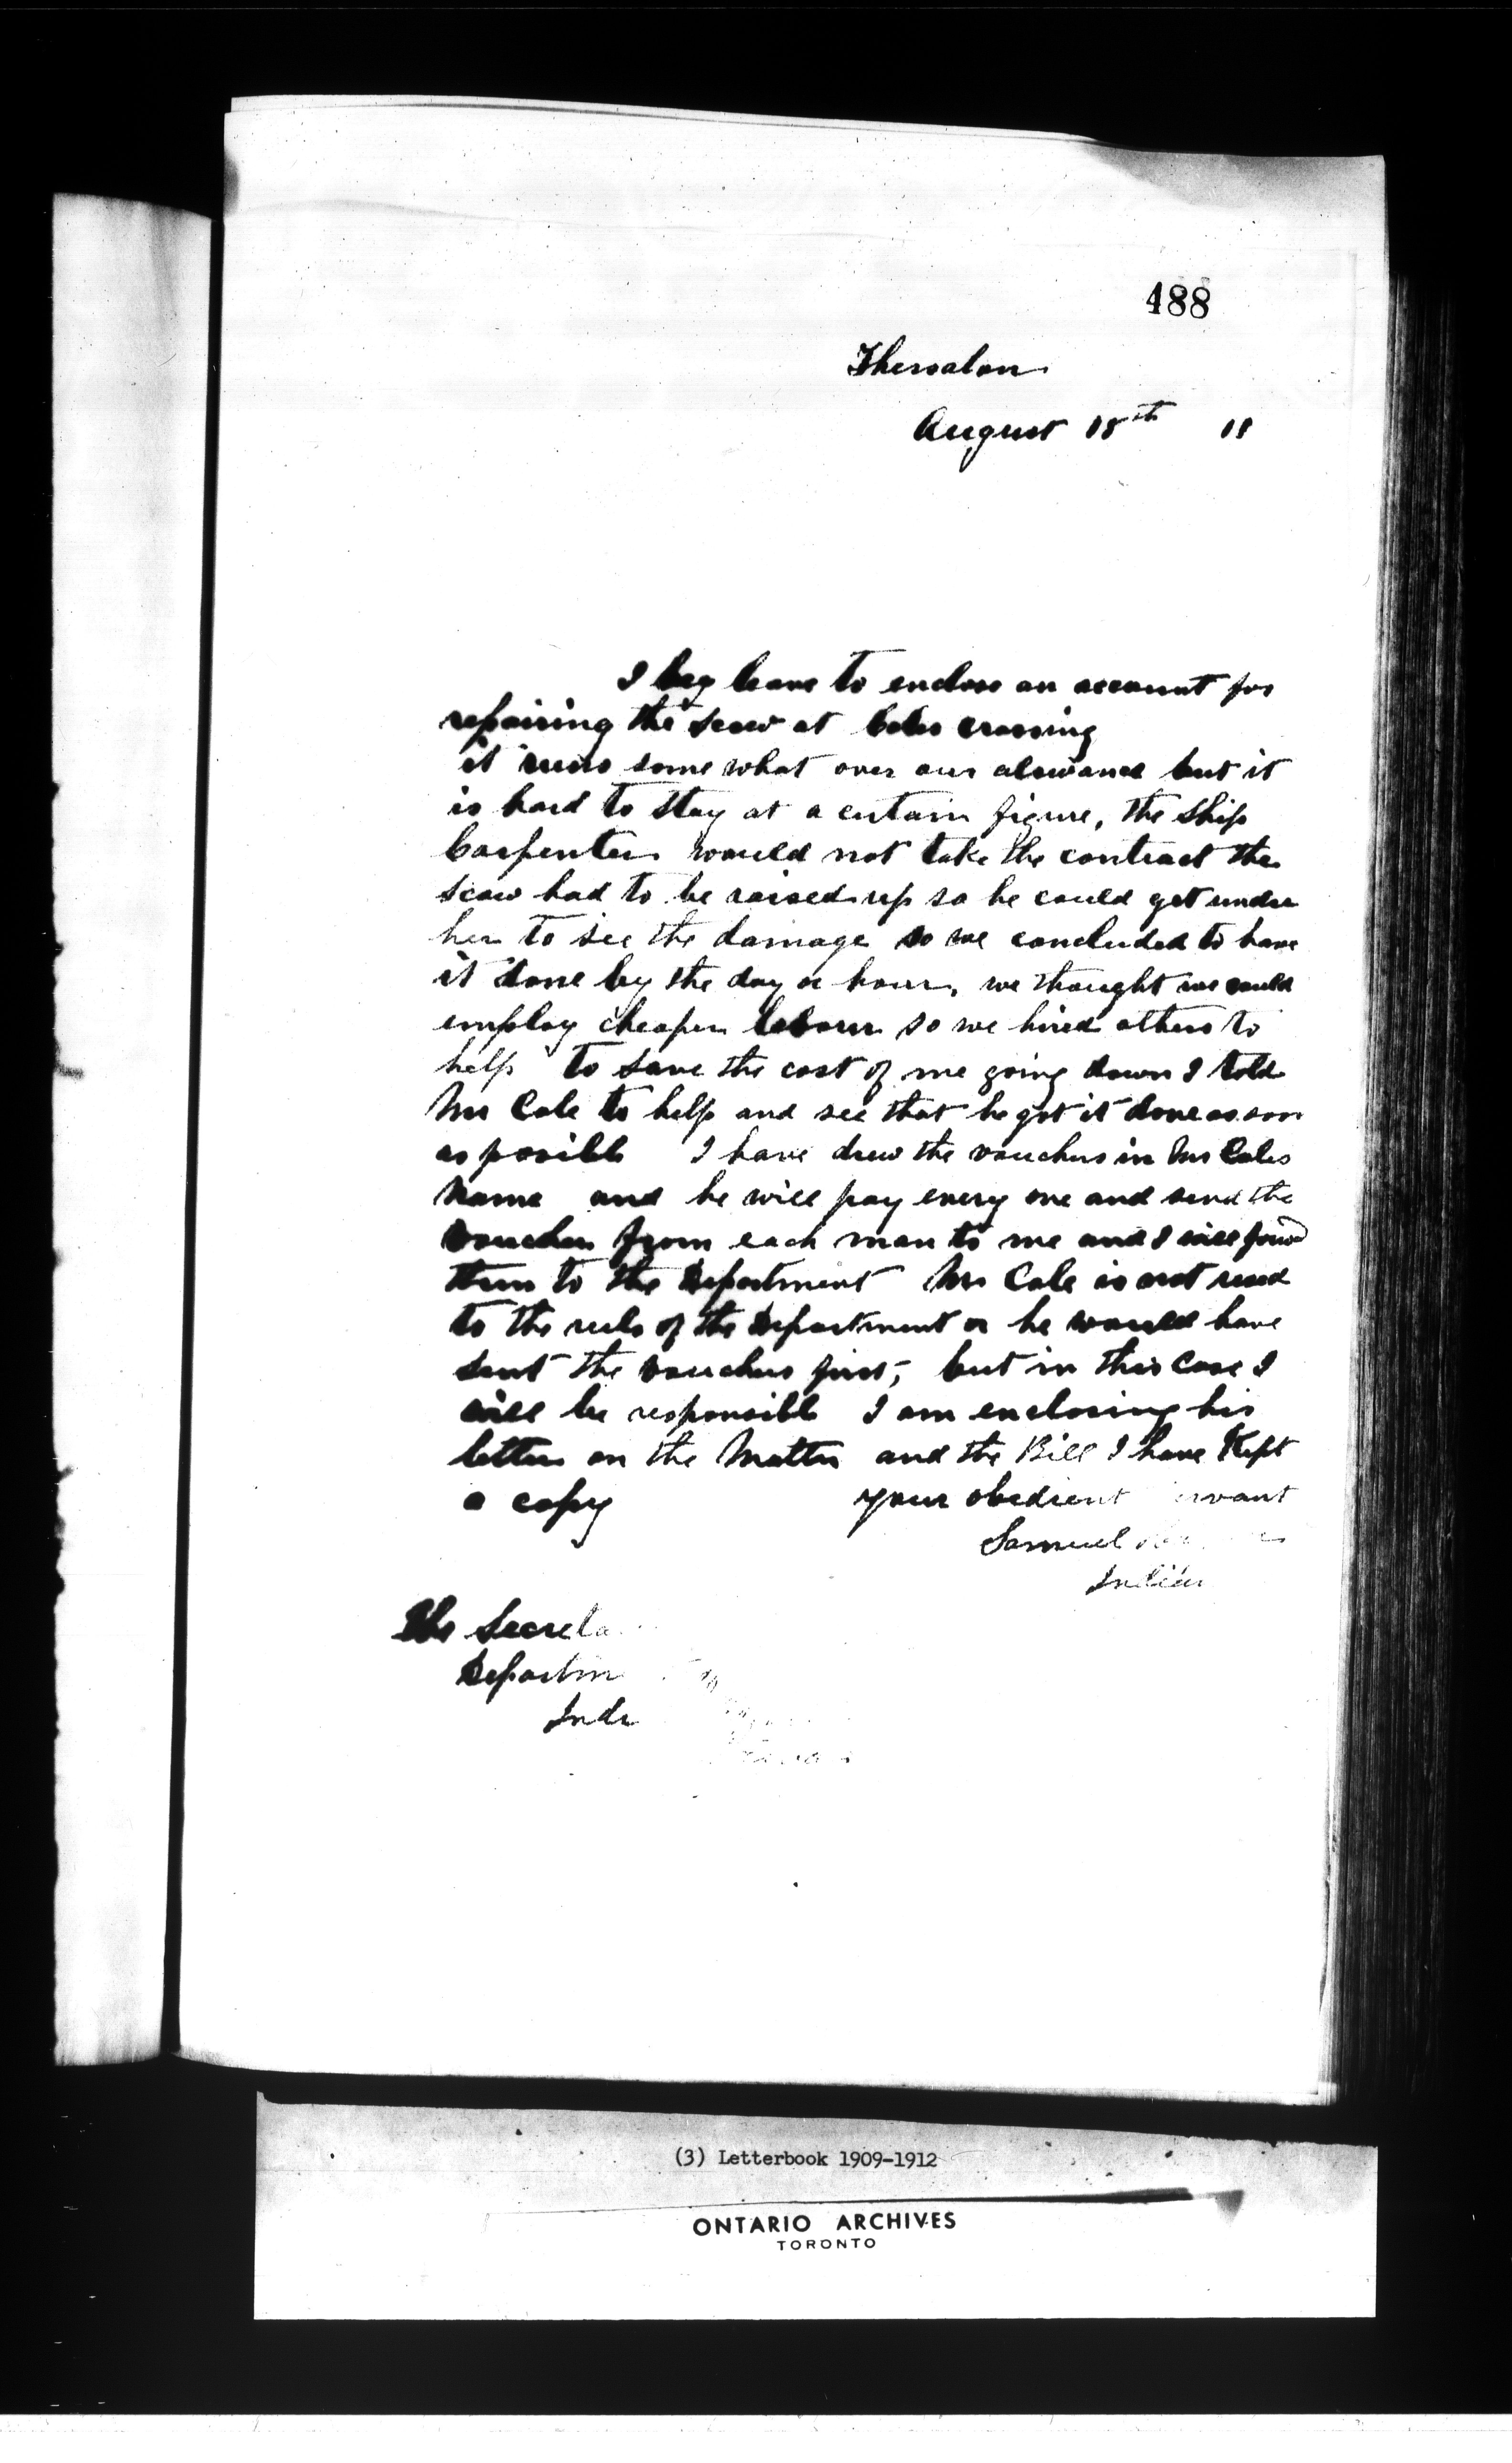 488
Thessalon
August 18th 11
I beg leave to enclose an account for
repairing the scow at Coles crossing
it runs some what over our alowance but it
is hard to stay at a certain figure, the ship
Carpenter would not take the contract the
scow had to be raised up so he could get under
her to see the damage so we concluded to have
it done by the day or hour, we thought we could
employ cheaper labour so we hired others to
help to save the cost of me going down I told
Mr Cole to help and see that he got it done as soon
as posible I have drew the vouchers in Mr Coles
Name and he will pay every one and send the
voucher from each man to me and I will
them to the Department Mr Cole is not used
to the ruls of the Department or he would have
sent the vouchers first, but in this Case I
will be responsible I am enclosing his
letter on the Matter and the Bill I have Kept
a copy your obedient
Samuel
Indian
The Secreta
Departm
Indi
(3) Letterbook 1909-1912
ONTARIO ARCHIVES
TORONTO